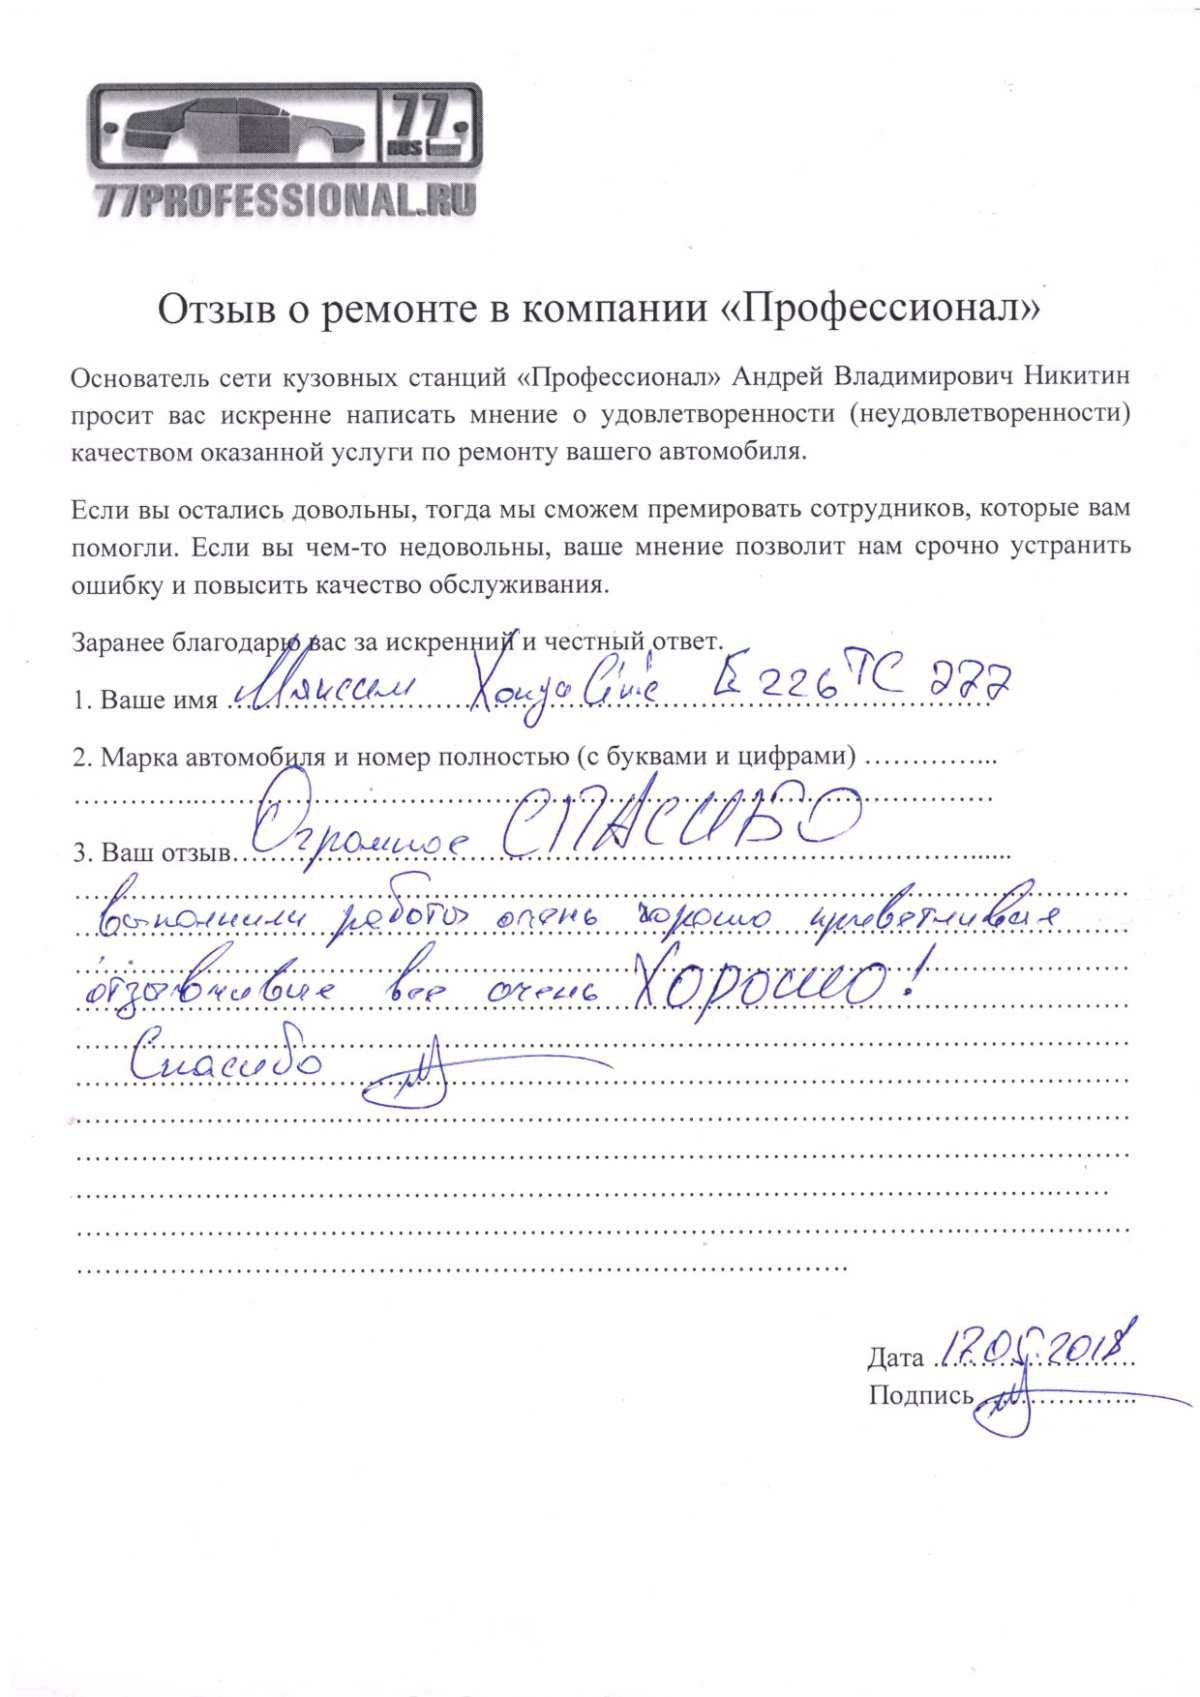 77
RUS
77PROFESSIONAL.RU
Отзыв о ремонте в компании «Профессионал»
Основатель сети кузовных станций «Профессионал» Андрей Владимирович Никитин
просит вас искренне написать мнение о удовлетворенности (неудовлетворенности)
качеством оказанной услуги по ремонту вашего автомобиля.
Если вы остались довольны, тогда мы сможем премировать сотрудников, которые вам
помогли. Если вы чем-то недовольны, ваше мнение позволит нам срочно устранить
ошибку и повысить качество обслуживания.
Заранее благодарю вас за искренний и честный ответ.
1. Ваше имя Максим Хонда Е226ТС 777
2. Марка автомобиля и номер полностью (с буквами и цифрами)
3. Ваш отзыв Огромное СПАСИБО
выполнили работы очень хорошо приветливые
отзывчивые все очень Хорошо!
Спасибо
Дата 17.05.2018
Подпись